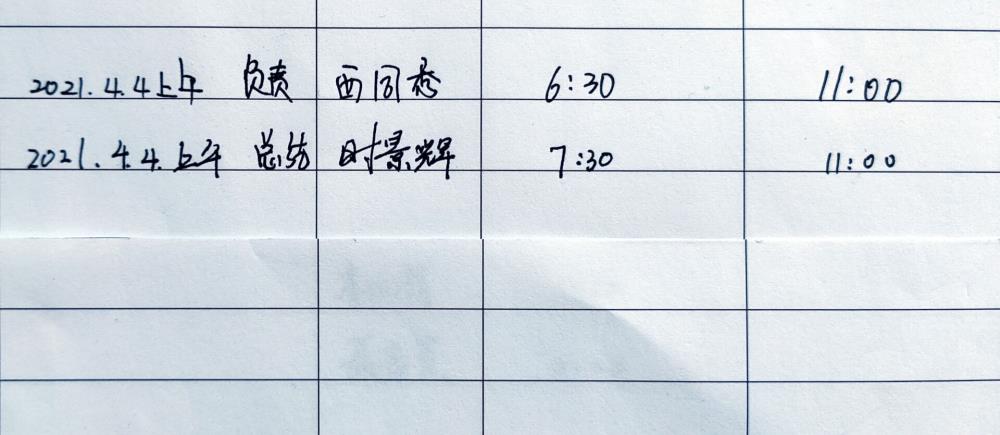 2021.4.4上午 负责 西同秀 6:30 11:00
2021.4.4.上午 总结 时景辉 7:30 11:00